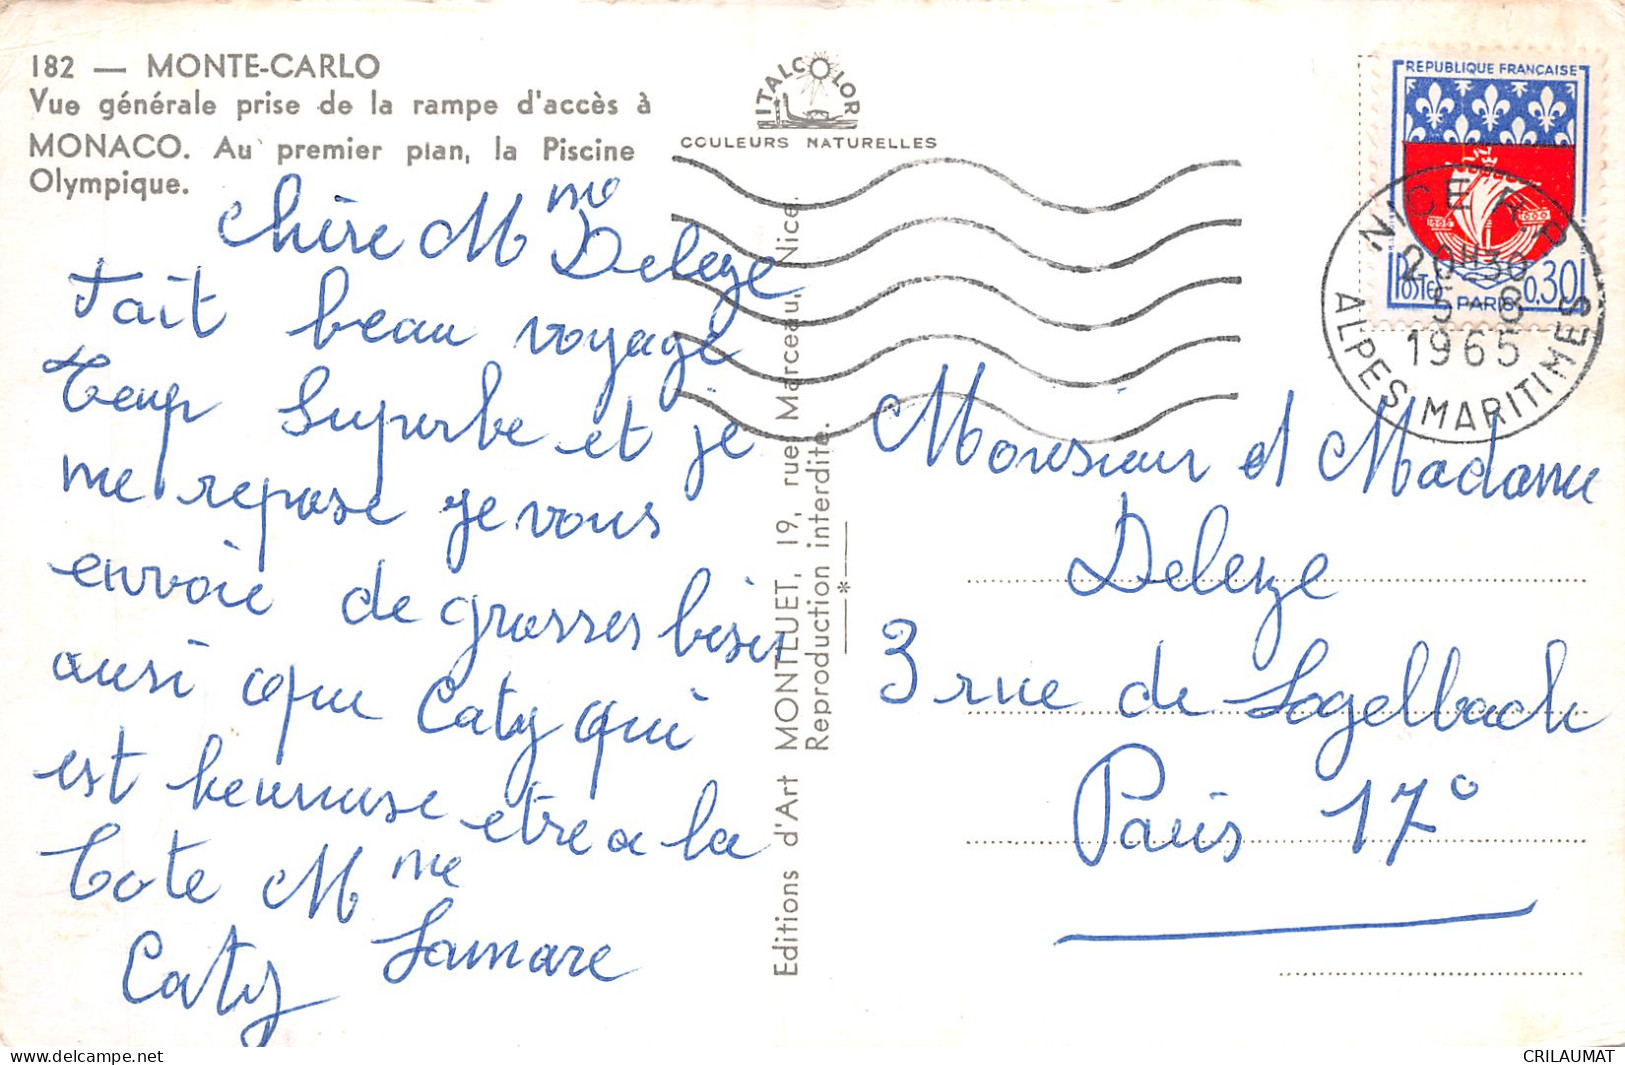 182 — MONTE-CARLO
Vue générale prise de la rampe d'accès à
MONACO. Au premier plan, la Piscine
Olympique.
ITALCOLOR
COULEURS NATURELLES
REPUBLIQUE FRANÇAISE
POSTES PARIS 0,30
NICE R.P
20H30
5-8
1965
ALPES MARITIMES
Chère Mme Deleze
Fait beau voyage
Temp Superbe et je
me repose je vous
envoie de grosses bises
ausi que Caty qui
est heureuse etre a la
Cote Mme
Lamare
Caty
Editions d'Art MONTLUET, 19, rue Marceau, Nice.
Reproduction interdite.
Monsieur et Madame
Deleze
3 rue de Logelbach
Paris 17°
delcampe.net
CRILAUMAT